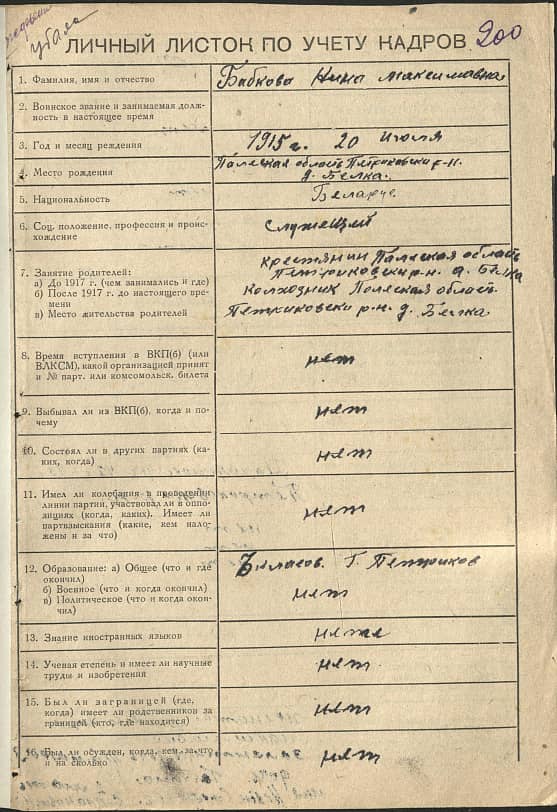 убыла
ЛИЧНЫЙ ЛИСТОК ПО УЧЕТУ КАДРОВ 200
1. Фамилия, имя и отчество Бабкова Нина Максимавна
2. Воинское звание и занимаемая долж-
ность в настоящее время
3. Год и месяц рождения 1915 г. 20 Июля
4. Место рождения Палеская область Петриковски р-н.
д. Белка.
5. Национальность
6. Соц. положение, профессия и проис-
хождение служещий
7. Занятие родителей: крестянин Палеская область
а) До 1917 г. (чем занимались и где) Петриковски р-н. д. Белка
б) После 1917 г. до настоящего вре- колхозник Полеская област
мени
в) Место жительства родителей Петриковски р-н. д. Белка.
8. Время вступления в ВКП(б) (или
ВЛКСМ), какой организацией принят нет
и № парт. или комсомольск. билета
9. Выбывал ли из ВКП(б), когда и по- нет
чему
10. Состоял ли в других партиях (ка- нет
ких, когда)
11. Имел ли колебания в проведении
линии партии, участвовал ли в оппо-
зициях (когда, каких). Имеет ли нет
партвзыскания (какие, кем нало-
жены и за что)
12. Образование: а) Общее (что и где г. Петриков
окончил)
б) Военное (что и когда окончил) нет
в) Политическое (что и когда окон-
чил)
13. Знание иностранных языков
14. Ученая степень и имеет ли научные нет.
труды и изобретения
15. Был ли заграницей (где,
когда) имеет ли родственников за нет
границей (кто, где находится)
16. Был ли осужден, когда, кем за что нет
и на сколько